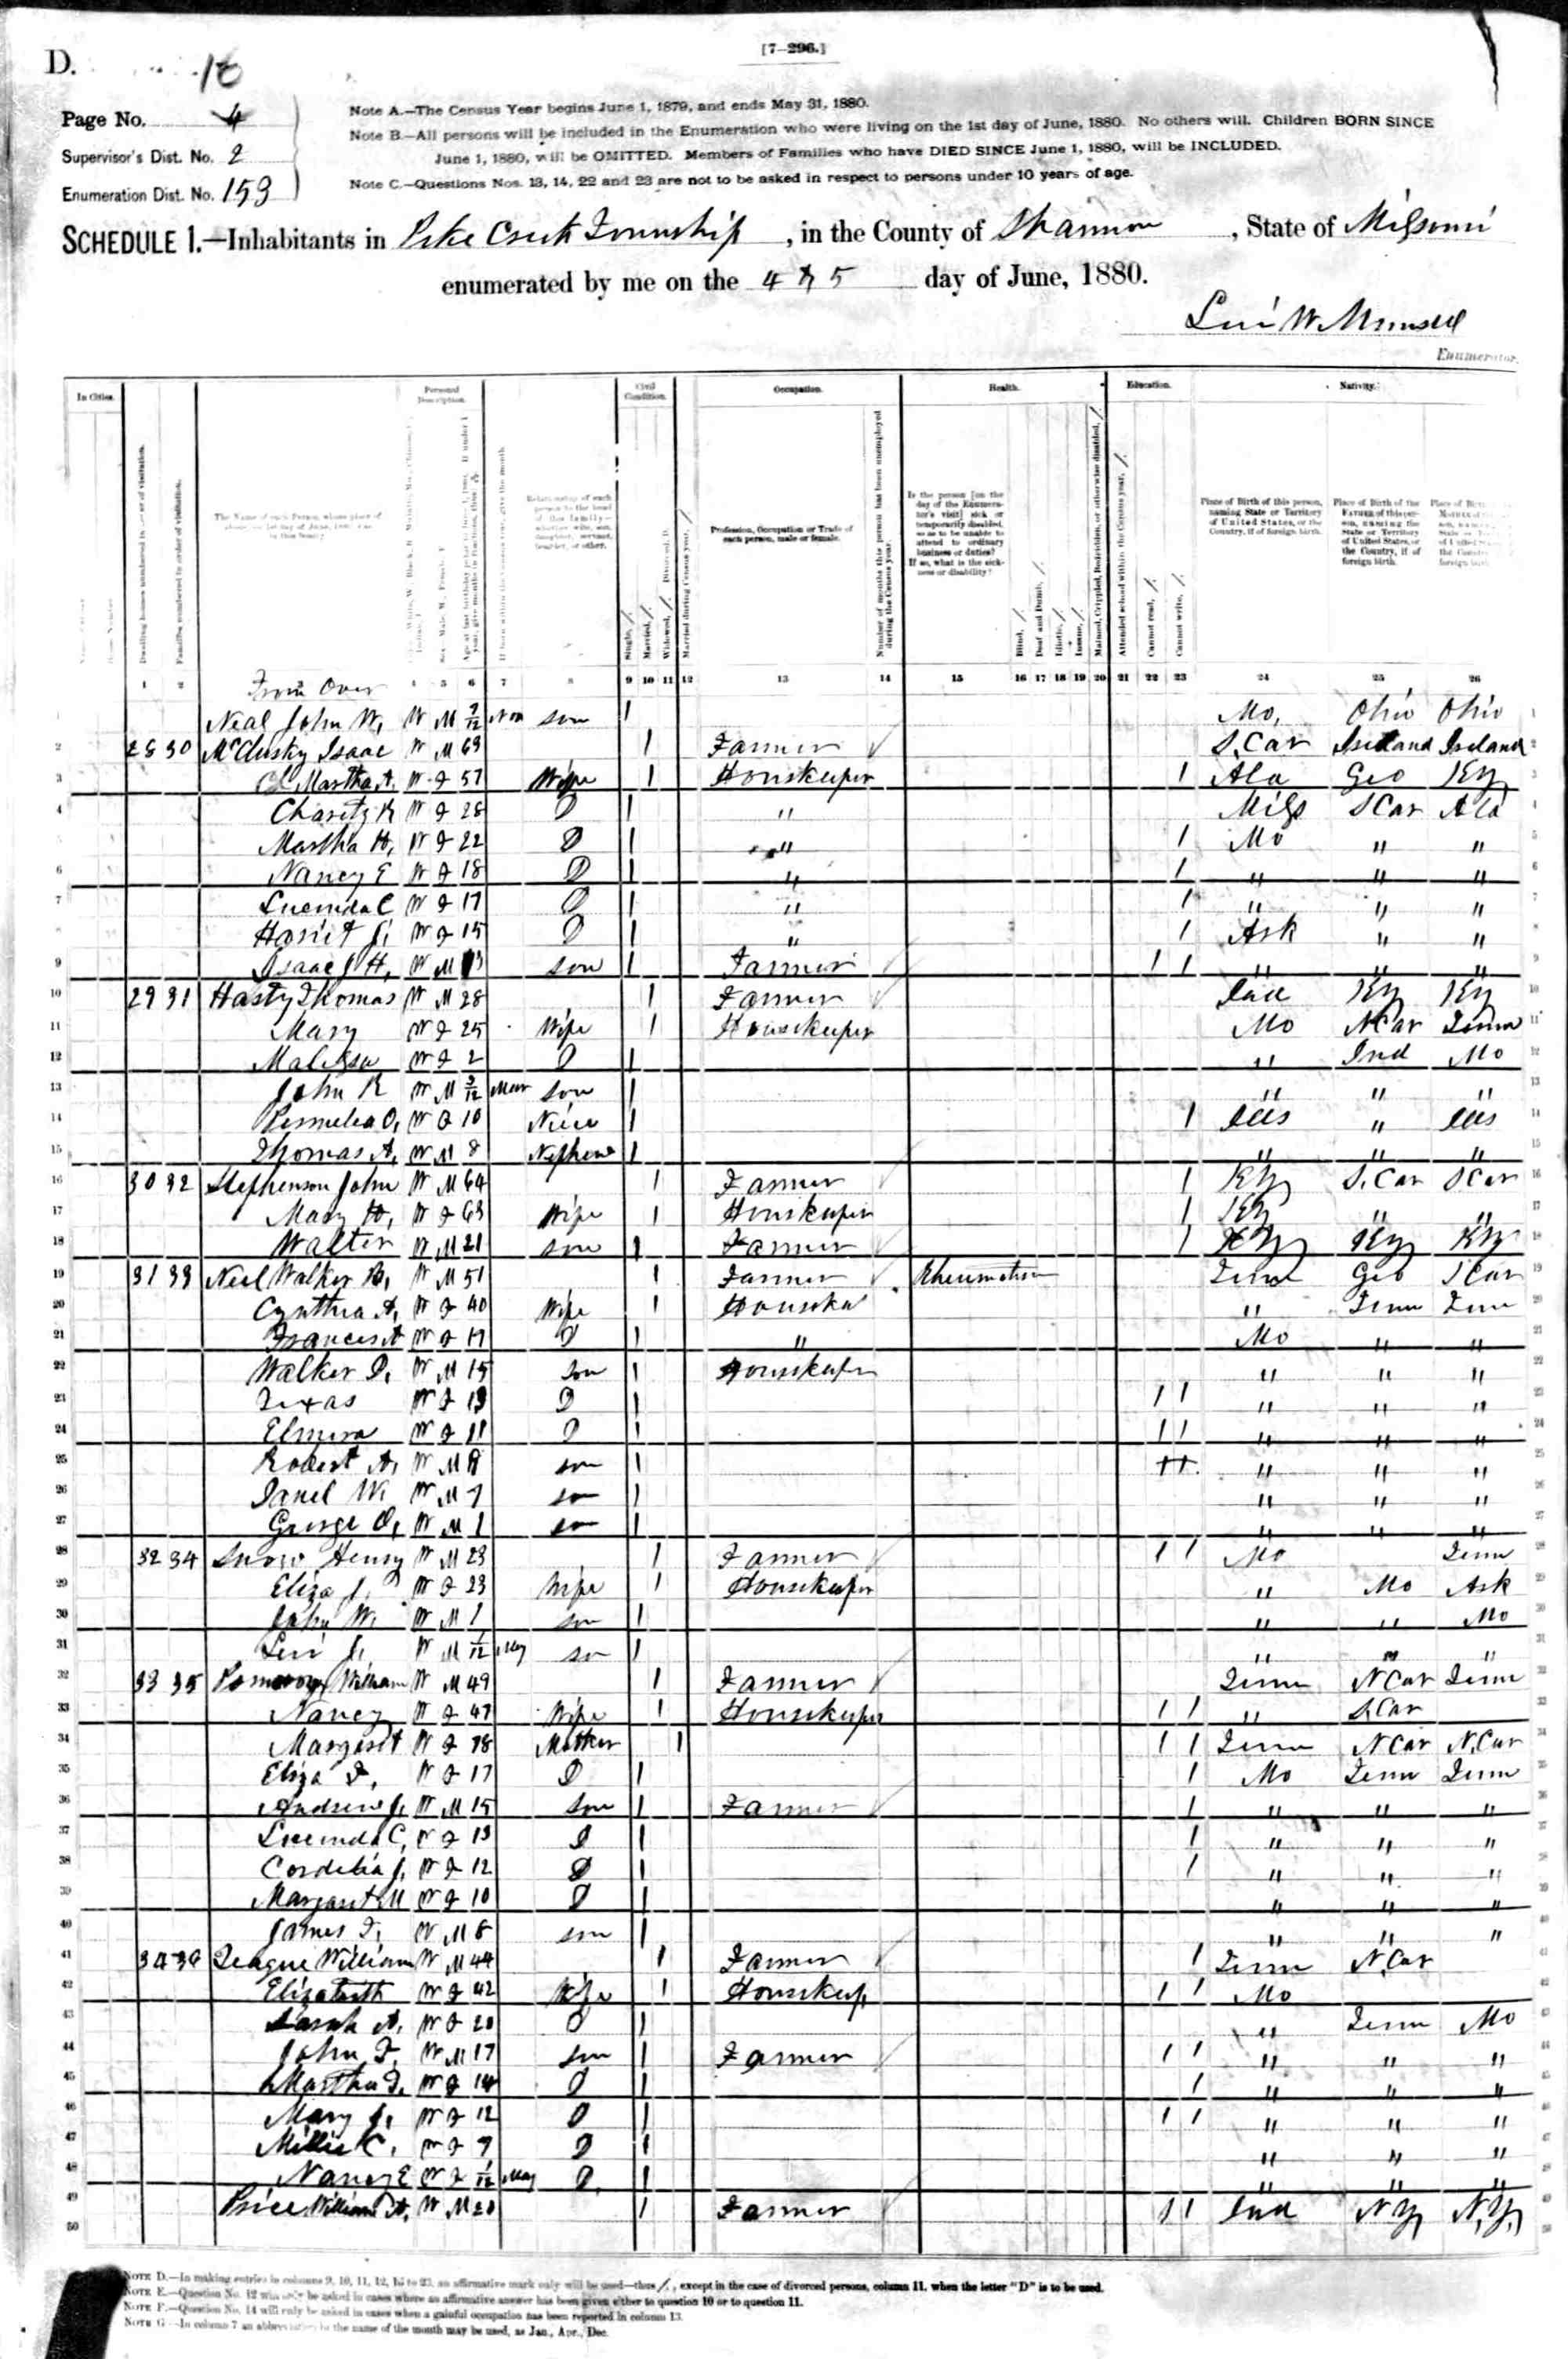 D.
18
[7-296.]
Page No. 4
Supervisor's Dist. No. 2
Enumeration Dist. No. 153
Note A.—The Census Year begins June 1, 1879, and ends May 31, 1880.
Note B.—All persons will be included in the Enumeration who were living on the 1st day of June, 1880. No others will. Children BORN SINCE
June 1, 1880, will be OMITTED. Members of Families who have DIED SINCE June 1, 1880, will be INCLUDED.
Note C.—Questions Nos. 13, 14, 22 and 23 are not to be asked in respect to persons under 10 years of age.
SCHEDULE 1.—Inhabitants in Pike Creek Township, in the County of Shannon, State of Missouri
enumerated by me on the 4 & 5 day of June, 1880.
Levi W Munsell
Enumerator.
In Cities. Personal Description. Civil Condition. Occupation. Health. Education. Nativity.
1 2 4 5 6 7 8 9 10 11 12 13 14 15 16 17 18 19 20 21 22 23 24 25 26
From Over
1 Neal John W, W M 7/12 Nov son 1 Mo, Ohio Ohio
2 28 30 McClusky Isaac W M 63 1 Farmer S.Car Ireland Ireland
3 Martha A. W F 57 Wife 1 Houskeeper 1 Ala Geo Ky
4 Charity R W F 28 D 1 " Miss S Car Ala
5 Martha H, W F 22 D 1 " 1 Mo " "
6 Nancy E W F 18 D 1 " 1 " " "
7 Lucinda C W F 17 D 1 " 1 " " "
8 Hariet J, W F 15 D 1 " 1 Ark " "
9 Isaac J H, W M 13 son 1 Farmer 1 1 " " "
10 29 31 Hasty Thomas W M 28 1 Farmer Ind Ky Ky
11 Mary W F 25 Wife 1 Housekeeper Mo N Car Tenn
12 Malissa W F 2 D 1 " Ind Mo
13 John R W M 3/12 Mar son 1 " " "
14 Permelia O, W F 10 Niece 1 1 Ills " Ills
15 Thomas A, W M 8 Nephew 1 " " "
16 30 32 Stephenson John W M 64 1 Farmer 1 Ky S.Car S Car
17 Mary H, W F 63 Wife 1 Houskeeper 1 Ky " "
18 Walter W M 21 son 1 Farmer 1 Ky Ky Ky
19 31 33 Neel Walker B, W M 51 1 Farmer Rheumatism Tenn Geo S Car
20 Cynthia A, W F 40 Wife 1 Houseke " Tenn Tenn
21 Frances A W F 17 D 1 " Mo " "
22 Walker D, W M 15 son 1 Houskeeper " " "
23 Texas W F 13 D 1 1 1 " " "
24 Elmira W F 11 D 1 1 1 " " "
25 Robert A, W M 8 son 1 " " "
26 Danel W. W M 7 son 1 " " "
27 George O, W M 1 son 1 " " "
28 32 34 Snow Henry W M 23 1 Farmer 1 1 Mo Tenn
29 Eliza J, W F 23 Wife 1 Housekeeper " Mo Ark
30 John W. W M 1 son 1 " " Mo
31 Levi J, W M 1/12 May son " " "
32 33 35 Pomeroy William W M 49 1 Farmer Tenn N Car Tenn
33 Nancy W F 47 Wife 1 Housekeeper 1 1 " S.Car
34 Margaret W F 78 Mother 1 1 1 Tenn N Car N.Car
35 Eliza F, W F 17 D 1 1 Mo Tenn Tenn
36 Andrew J, W M 15 son 1 Farmer 1 " " "
37 Lucinda C, W F 13 D 1 1 " " "
38 Cordelia J, W F 12 D 1 1 " " "
39 Margaret M W F 10 D 1 " " "
40 James F, W M 8 son 1 " " "
41 34 36 Teague William W M 44 1 Farmer 1 Tenn N.Car
42 Elizabeth W F 42 Wife 1 Housekeep 1 1 Mo
43 Sarah A, W F 20 D 1 " Tenn Mo
44 John F, W M 17 son 1 Farmer 1 1 " " "
45 Martha F, W F 14 D 1 1 " " "
46 Mary J, W F 12 D 1 1 1 " " "
47 Millie C, W F 7 D 1 " " "
48 Nancy E W F 1/12 May D. 1 " " "
49 Price William A, W M 20 1 Farmer 1 1 Ind N Y N,Y,
50
NOTE D.—In making entries in columns 9, 10, 11, 12, 16 to 23, an affirmative mark only will be used—thus /, except in the case of divorced persons, column 11, when the letter "D" is to be used.
NOTE E.—Question No. 12 will only be asked in cases where an affirmative answer has been given either to question 10 or to question 11.
NOTE F.—Question No. 14 will only be asked in cases when a gainful occupation has been reported in column 13.
NOTE G.—In column 7 an abbreviation in the name of the month may be used, as Jan., Apr., Dec.